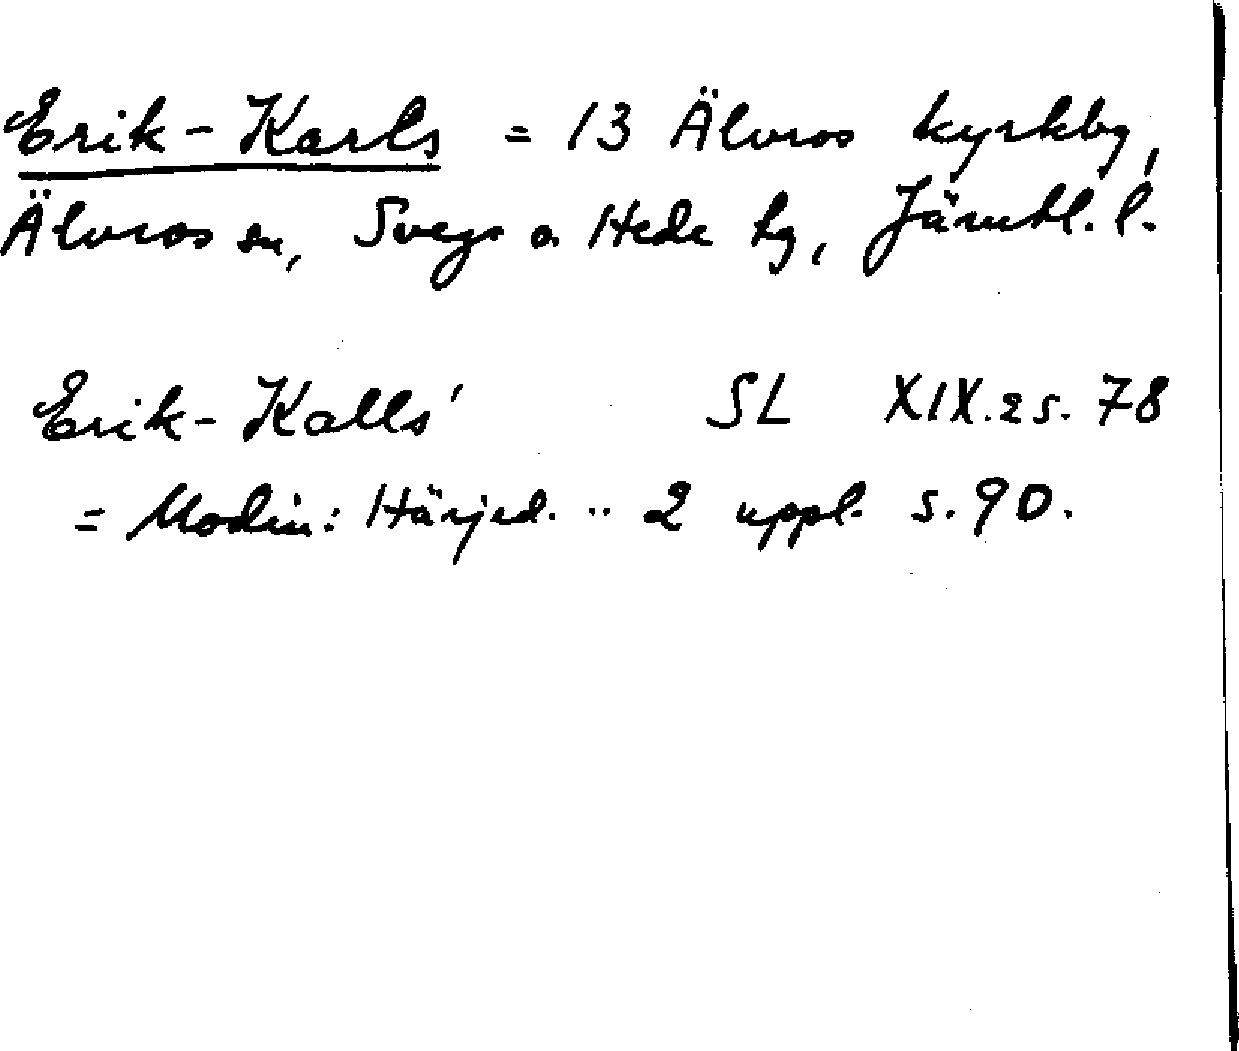 Erik-Karls = 13 Älvros kyrkby,
Älvros sn, Svegs o. Hede tg, Jämtl. l.
Erik-Kalls' SL XIX.2 s. 78
= Modin: Härjed. .. 2 uppl. s. 90.